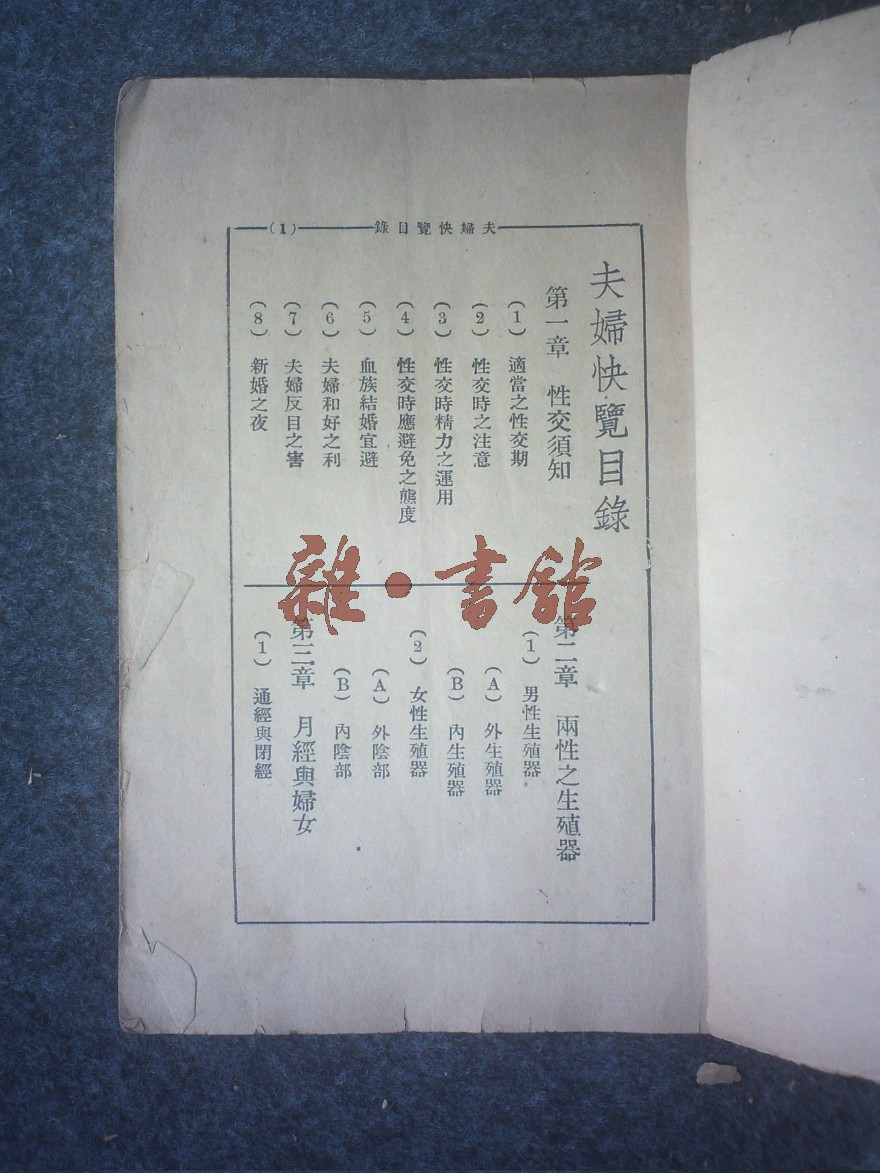 夫婦快覽目錄 (1)
夫婦快覽目錄
第一章 性交須知
(1) 適當之性交期
(2) 性交時之注意
(3) 性交時精力之運用
(4) 性交時應避免之態度
(5) 血族結婚宜避
(6) 夫婦和好之利
(7) 夫婦反目之害
(8) 新婚之夜
第二章 兩性之生殖器
(1) 男性生殖器
(A) 外生殖器
(B) 內生殖器
(2) 女性生殖器
(A) 外陰部
(B) 內陰部
第三章 月經與婦女
(1) 通經與閉經
雜·書館